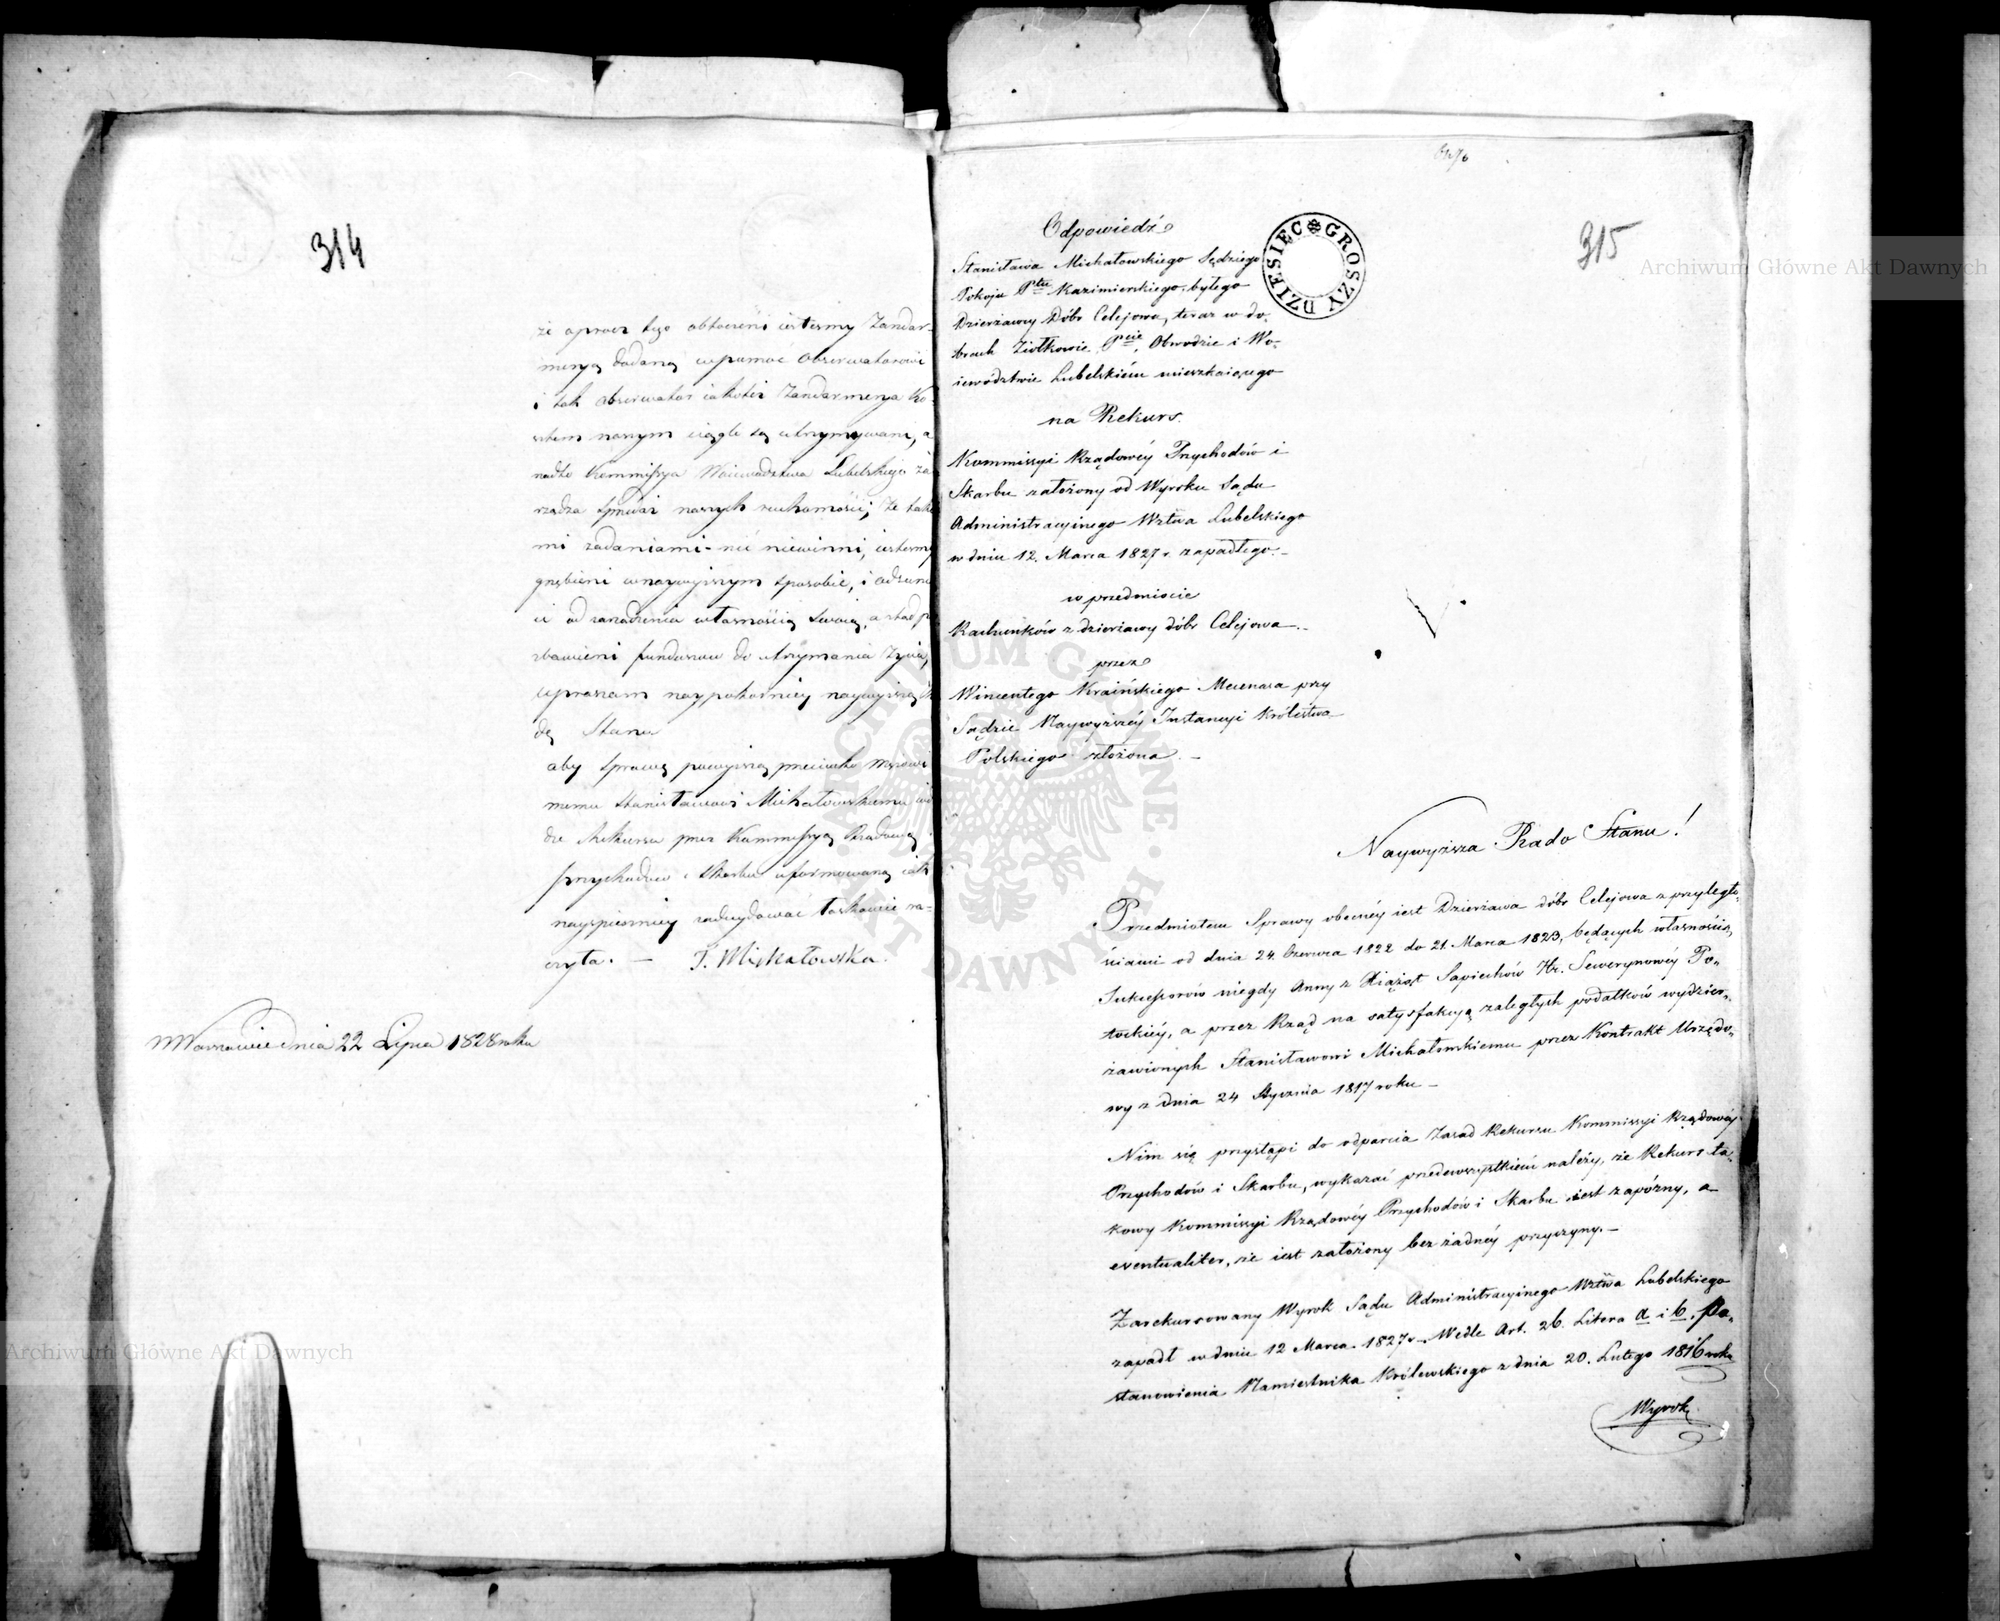 314
że oprocz tego obtoczeni iestesmy Żandar-
meryą dodaną w pomoc Obserwatorowi
i tak Obserwator iakoteż Żandarmerya Ko-
sztem naszym ciągle są utrzymywani, a
nadto Kommissya Woiewodztwa Lubelskiego za
rządza sprzedaż naszych ruchomości; że tak
mi żądaniami nic niewinni, iestesmy
gnębieni w naywyższym sposobie, i odsunie
ci od zarządzenia własnością swoią, a ztąd p
zbawieni funduszu do utrzymania życia,
upraszam naypokorniey naywyższą
dę Stanu
aby sprawę powyższą przeciwko Mężowi
memu Stanisławowi Michałowskiemu
dze Rekursu przez Kommissyą Rządową
Przychodow i Skarbu uformowaną iak
nayspieszniey zadecydować łaskawie ra-
czyła. — J. Michałowska.
w Warszawie dnia 22 Lipca 1828 roku
315
DZIESIĘC GROSZY
Odpowiedź
Stanisława Michałowskiego Sędziego
Pokoju Pttu Kazimierskiego, byłego
Dzierżawcy Dóbr Celejowa, teraz w do-
brach Ziółkowie Pcie, Obwodzie i Wo-
iewództwie Lubelskiem mieszkaiącego
na Rekurs.
Kommissyi Rządowéy Przychodów i
Skarbu założony od Wyroku Sądu
Administracyinego Wztwa Lubelskiego
w dniu 12. Marca 1827 r. zapadłego. –
w przedmiocie
Rachunków z dzierżawy dóbr Celejowa. –
przez
Wincentego Kraińskiego Mecenasa przy
Sądzie Naywyższéy Instancyi Królestwa
Polskiego złożona. –
Naywyższa Rado Stanu!
Przedmiotem Sprawy obecnéy iest Dzierżawa dóbr Celejowa z przyległo-
ściami od dnia 24 Czerwca 1822 do 21. Marca 1823, będących własnością
Sukcessorów niegdy Anny z Xiążąt Sapiehów Hr. Sewerynowéy Po-
tockiéy, a przez Rząd na satysfakcyą zaległych podatków wydzier-
żawionych Stanisławowi Michałowskiemu przez Kontrakt Urzędo-
wy z dnia 24 Stycznia 1817 roku –
Nim się przystąpi do odparcia Zasad Rekursu Kommissyi Rządowéy
Przychodów i Skarbu, wykazać przedewszystkiém należy, że Rekurs ta-
kowy Kommissyi Rządowéy Przychodów i Skarbu iest zapóźny, a
eventualiter, że iest założony bez żadnéy przyczyny. –
Zarekursowany Wyrok Sądu Administracyinego Wztwa Lubelskiego
zapadł w dniu 12 Marca 1827 r. Wedle Art. 26. Litera a i b. Po-
stanowienia Namiestnika Królewskiego z dnia 20. Lutego 1816 roku
Wyrok
Archiwum Główne Akt Dawnych
Archiwum Główne Akt Dawnych
ARCHIWUM GŁÓWNE AKT DAWNYCH